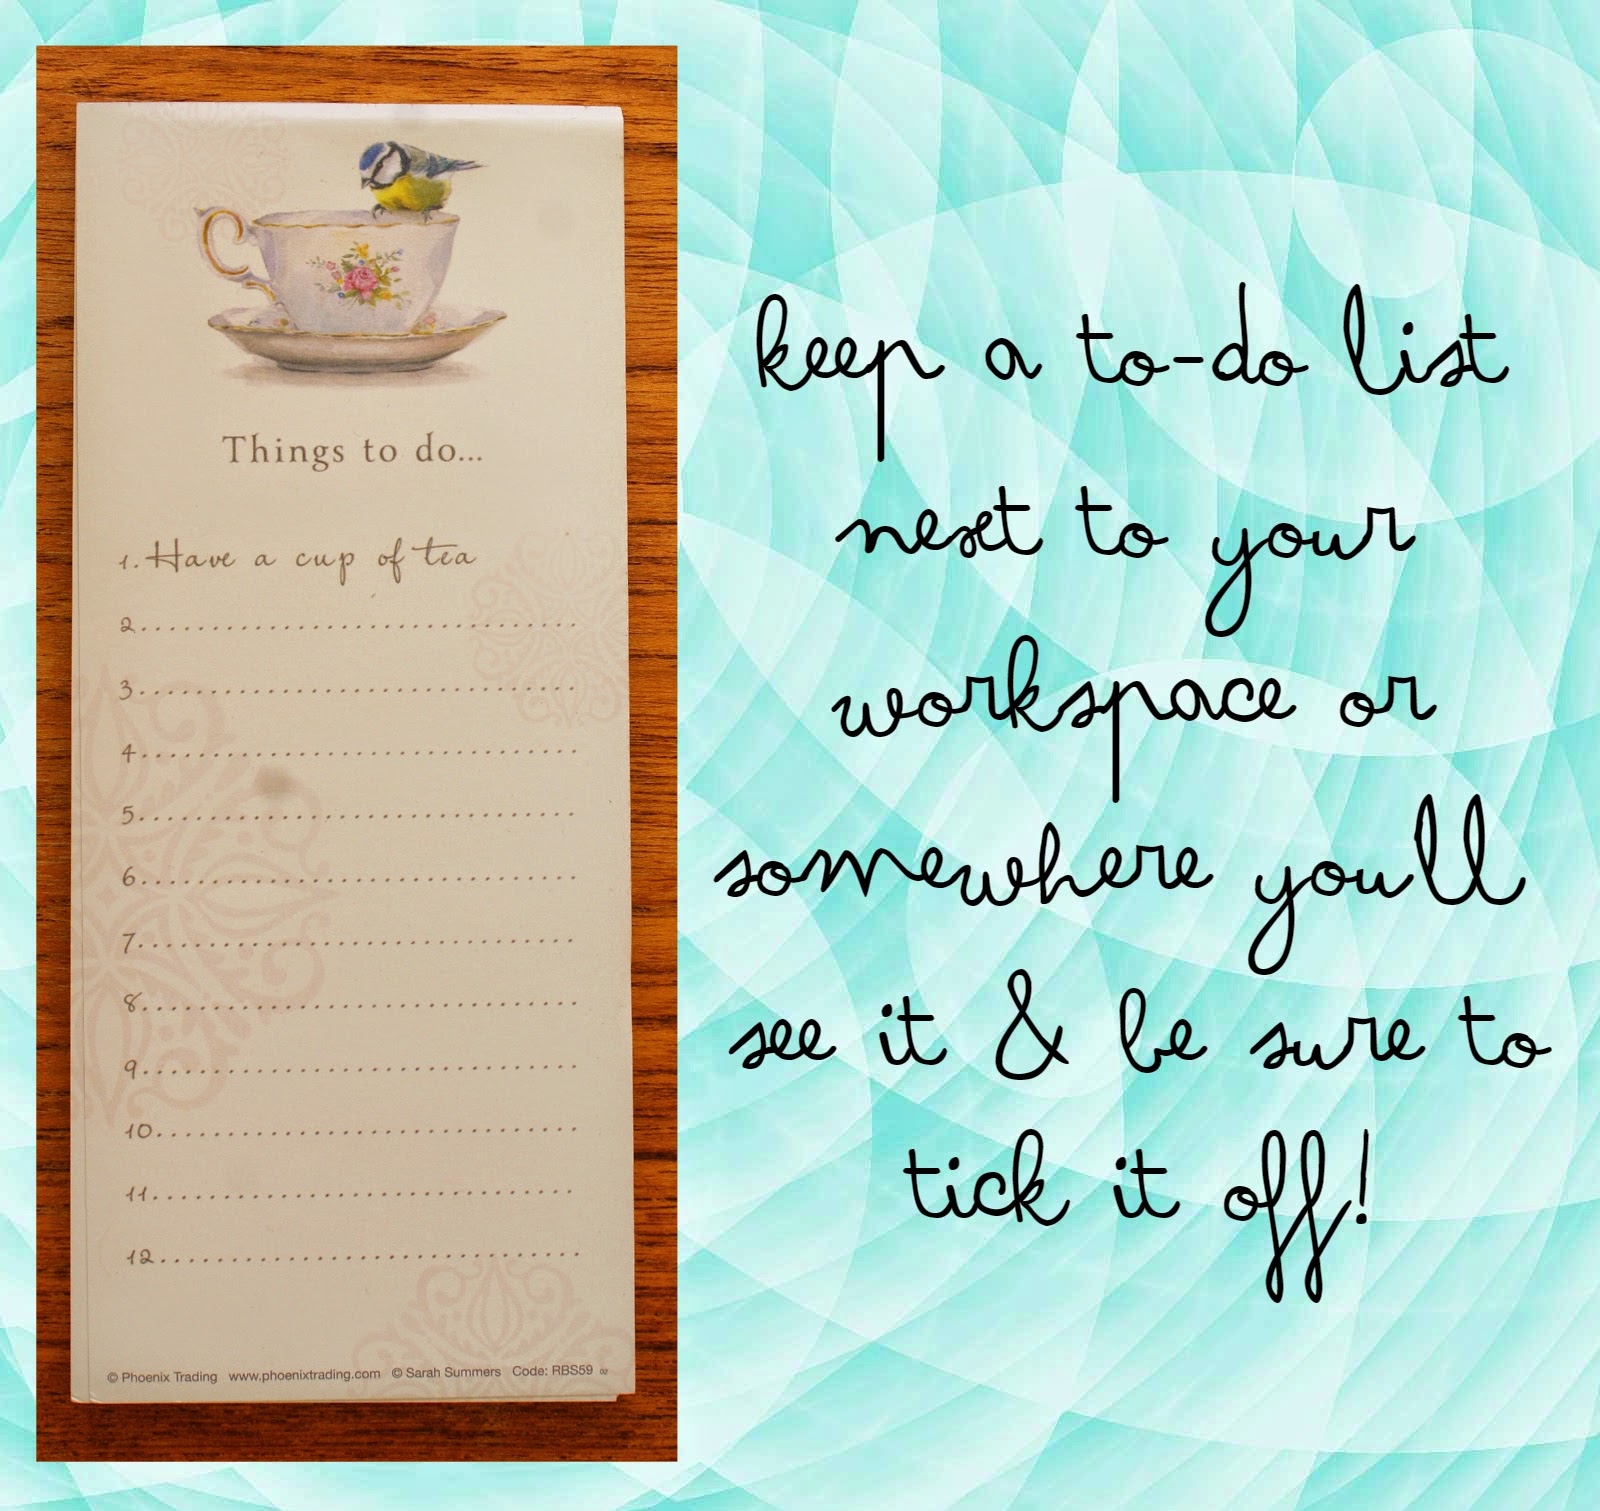 Things to do...
1. Have a cup of tea
2..............................
3..............................
4..............................
5..............................
6..............................
7..............................
8..............................
9..............................
10..............................
11..............................
12..............................
© Phoenix Trading www.phoenixtrading.com © Sarah Summers Code: RBS59
keep a to-do list
next to your
workspace or
somewhere youll
see it & be sure to
tick it off!